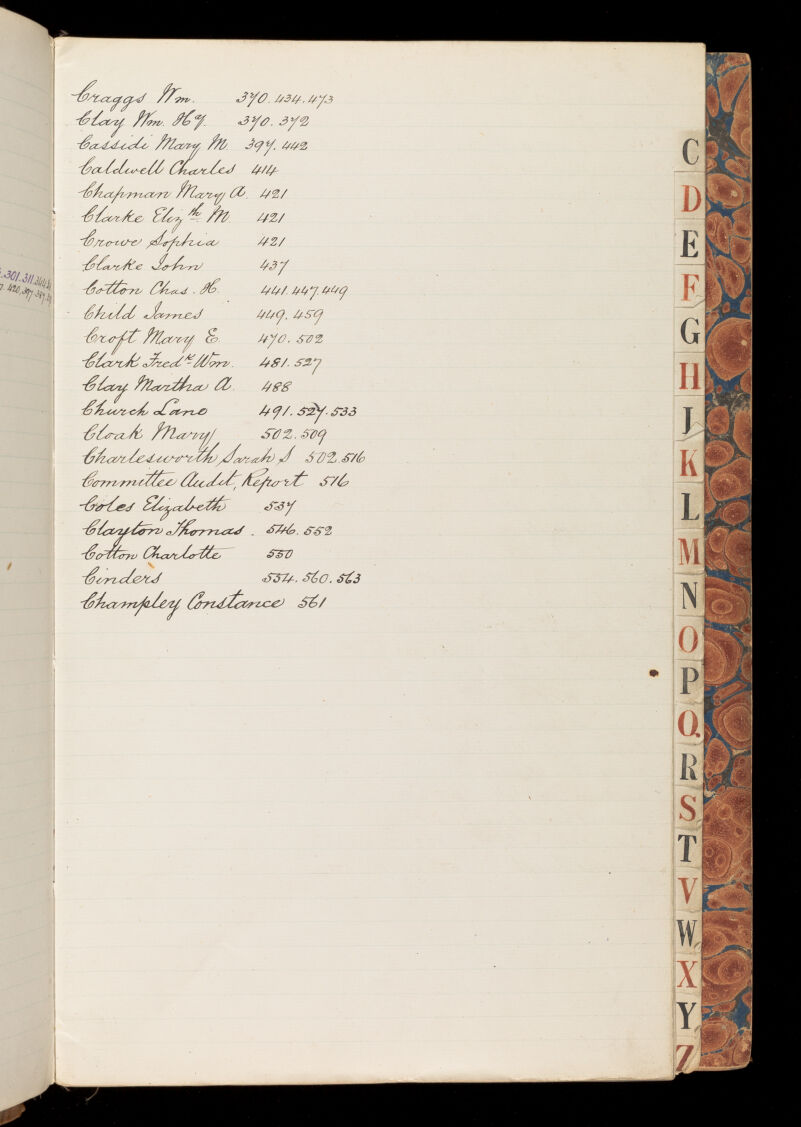 Craggs Wm. 370. 434. 473
Clay Wm. Hy. 370. 372
Cassidi Mary M. 397. 442
Caldwell Charles 414
Chapman Mary A. 421
Clarke Elizth M. 421
Crowe Sophia 421
Clarke John 437
Cotton Chas. H. 441. 447. 449
Child James 449. 459
Croft Mary E. 470. 502
Clark Fredk Wm. 481. 527
Clay Martha A. 488
Church Lane 491. 527. 533
Cloak Mary 502. 509
Charlesworth Sarah S 502. 516
Committee Audit, Report 516
Coles Elizabeth 537
Clayton Thomas. 546. 552
Cotton Charlotte 550
Cinders 554. 560. 563
Champley Constance 561
301. 311.
C
D
E
F
G
H
J
K
L
M
N
O
P
Q
R
S
T
V
W
X
Y
Z